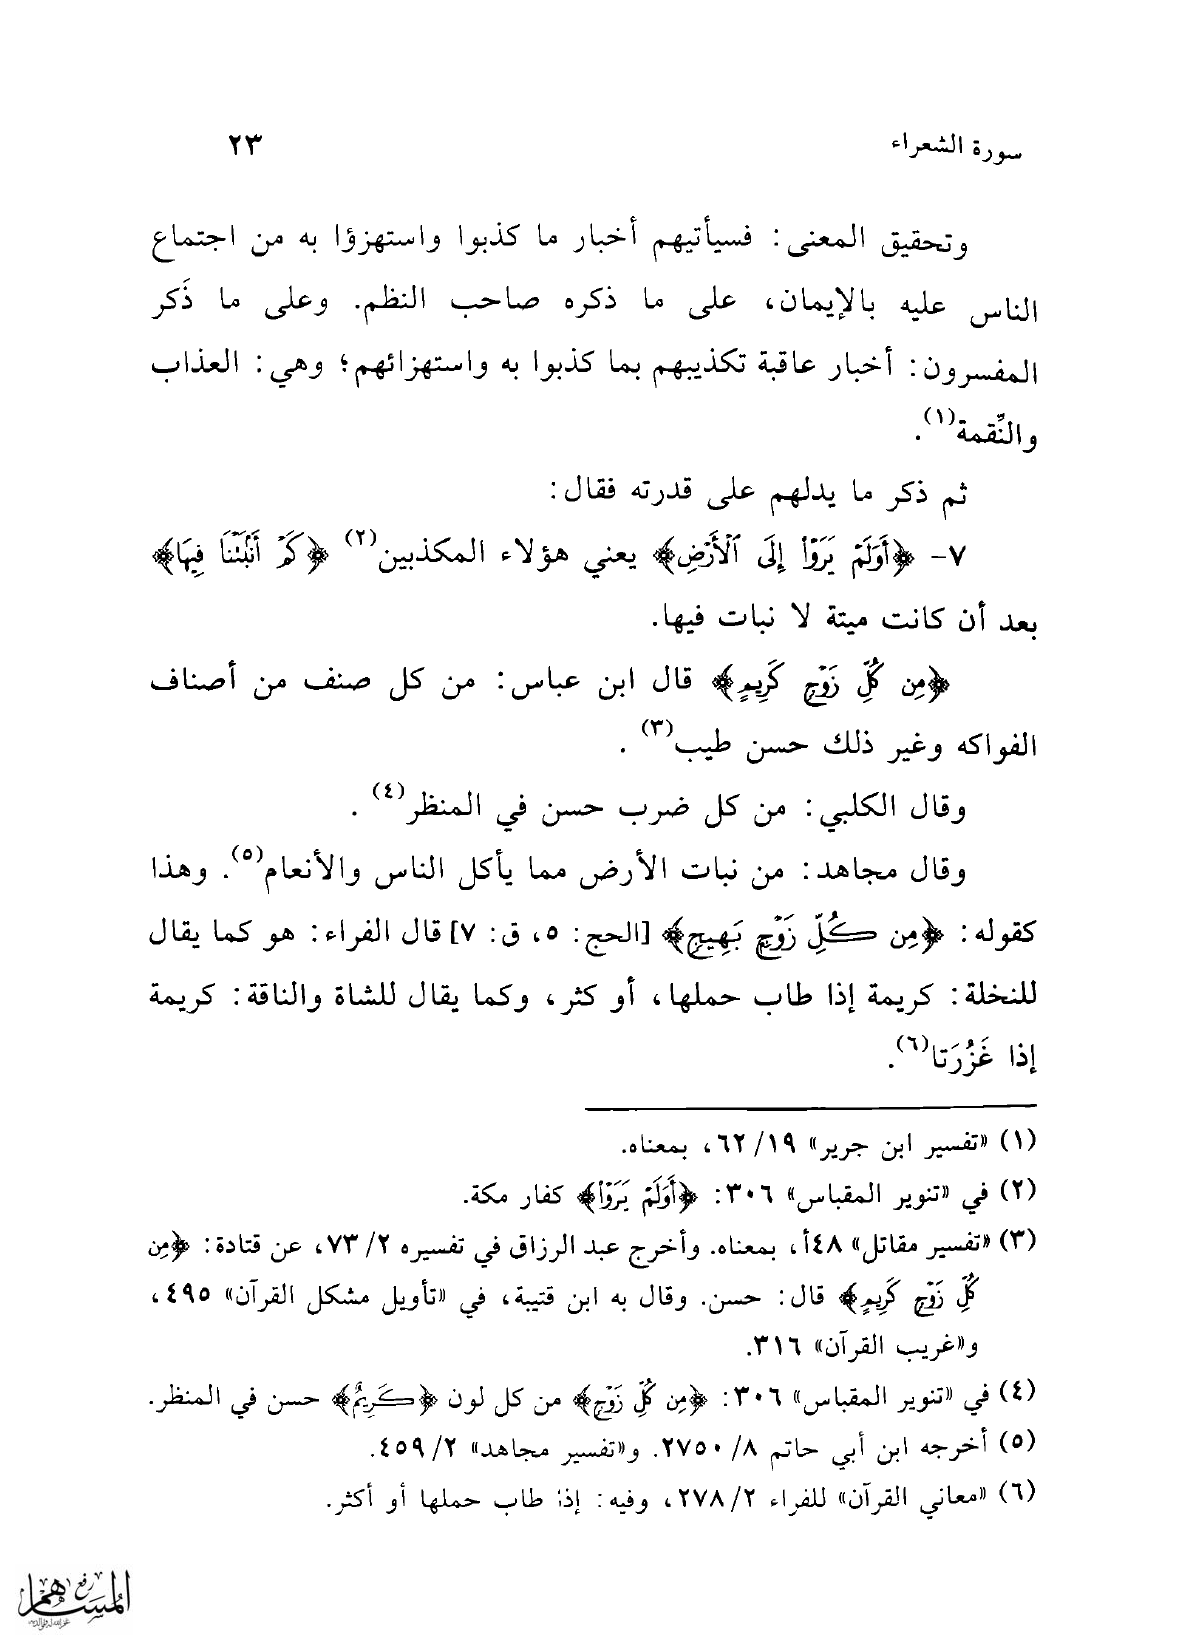 سورة الشعراء ٢٣
وتحقيق المعنى: فسيأتيهم أخبار ما كذبوا واستهزؤا به من اجتماع
الناس عليه بالإيمان، على ما ذكره صاحب النظم. وعلى ما ذَكر
المفسرون: أخبار عاقبة تكذيبهم بما كذبوا به واستهزائهم؛ وهي: العذاب
والنِّقمة(١).
ثم ذكر ما يدلهم على قدرته فقال:
٧- ﴿أَوَلَمْ يَرَوْا إِلَى ٱلْأَرْضِ﴾ يعني هؤلاء المكذبين(٢) ﴿كَمْ أَنۢبَتْنَا فِيهَا﴾
بعد أن كانت ميتة لا نبات فيها.
﴿مِن كُلِّ زَوْجٍ كَرِيمٍ﴾ قال ابن عباس: من كل صنف من أصناف
الفواكه وغير ذلك حسن طيب(٣).
وقال الكلبي: من كل ضرب حسن في المنظر(٤).
وقال مجاهد: من نبات الأرض مما يأكل الناس والأنعام(٥). وهذا
كقوله: ﴿مِن كُلِّ زَوْجٍ بَهِيجٍ﴾ [الحج: ٥، ق: ٧] قال الفراء: هو كما يقال
للنخلة: كريمة إذا طاب حملها، أو كثر، وكما يقال للشاة والناقة: كريمة
إذا غَزُرَتا(٦).
(١) «تفسير ابن جرير» ١٩/ ٦٢، بمعناه.
(٢) في «تنوير المقباس» ٣٠٦: ﴿أَوَلَمْ يَرَوْا﴾ كفار مكة.
(٣) «تفسير مقاتل» ٤٨أ، بمعناه. وأخرج عبد الرزاق في تفسيره ٢/ ٧٣، عن قتادة: ﴿مِن
كُلِّ زَوْجٍ كَرِيمٍ﴾ قال: حسن. وقال به ابن قتيبة، في «تأويل مشكل القرآن» ٤٩٥،
و«غريب القرآن» ٣١٦.
(٤) في «تنوير المقباس» ٣٠٦: ﴿مِن كُلِّ زَوْجٍ﴾ من كل لون ﴿كَرِيمٌ﴾ حسن في المنظر.
(٥) أخرجه ابن أبي حاتم ٨/ ٢٧٥٠. و«تفسير مجاهد» ٢/ ٤٥٩.
(٦) «معاني القرآن» للفراء ٢/ ٢٧٨، وفيه: إذا طاب حملها أو أكثر.